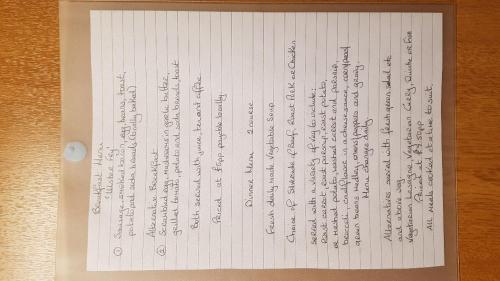 Breakfast Menu
Ulster Fry
① Sausage, smoked bacon, egg, beans, toast,
potato and soda breads (locally baked)
Alternative Breakfast
② Scrambled egg, mushrooms in garlic butter,
grilled tomato, potato and soda breads toast
Both served with juice, tea and coffee
Priced at payable locally.
Dinner Menu 2 course
Fresh daily made Vegetable Soup
Choice of Steak of Beef, Roast Pork or Chicken
served with a variety of veg to include:
Roast carrots and parsnip, roast potato,
or mashed potato, mashed carrot and parsnip,
broccoli, cauliflower in a cheese sauce,
green beans medley, onions/peppers and gravy.
Menu changes daily
Alternative served with fresh green salad etc
and above veg
Vegetarian Lasagne, Vegetarian Curry, Quiche or
Priced at
All meals cooked at a time to suit.